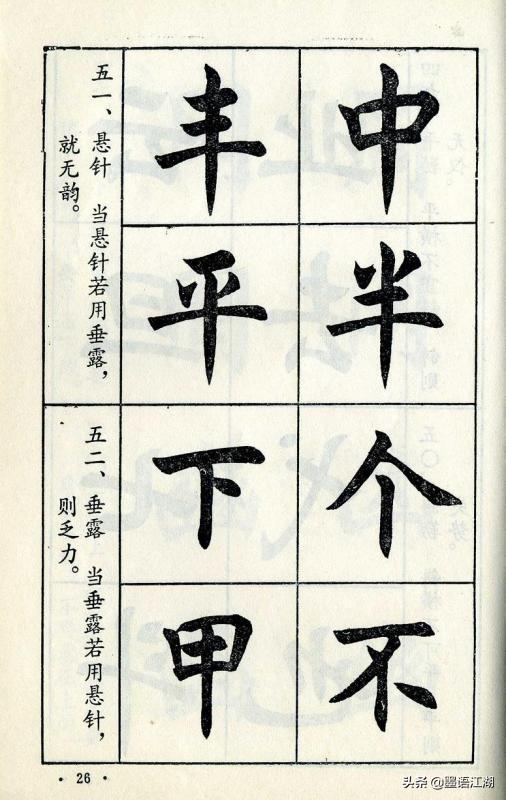 中半
丰平
五一、悬针 当悬针若用垂露，
就无韵。
个不
下甲
五二、垂露 当垂露若用悬针，
则乏力。
· 26 ·
头条 @墨语江湖